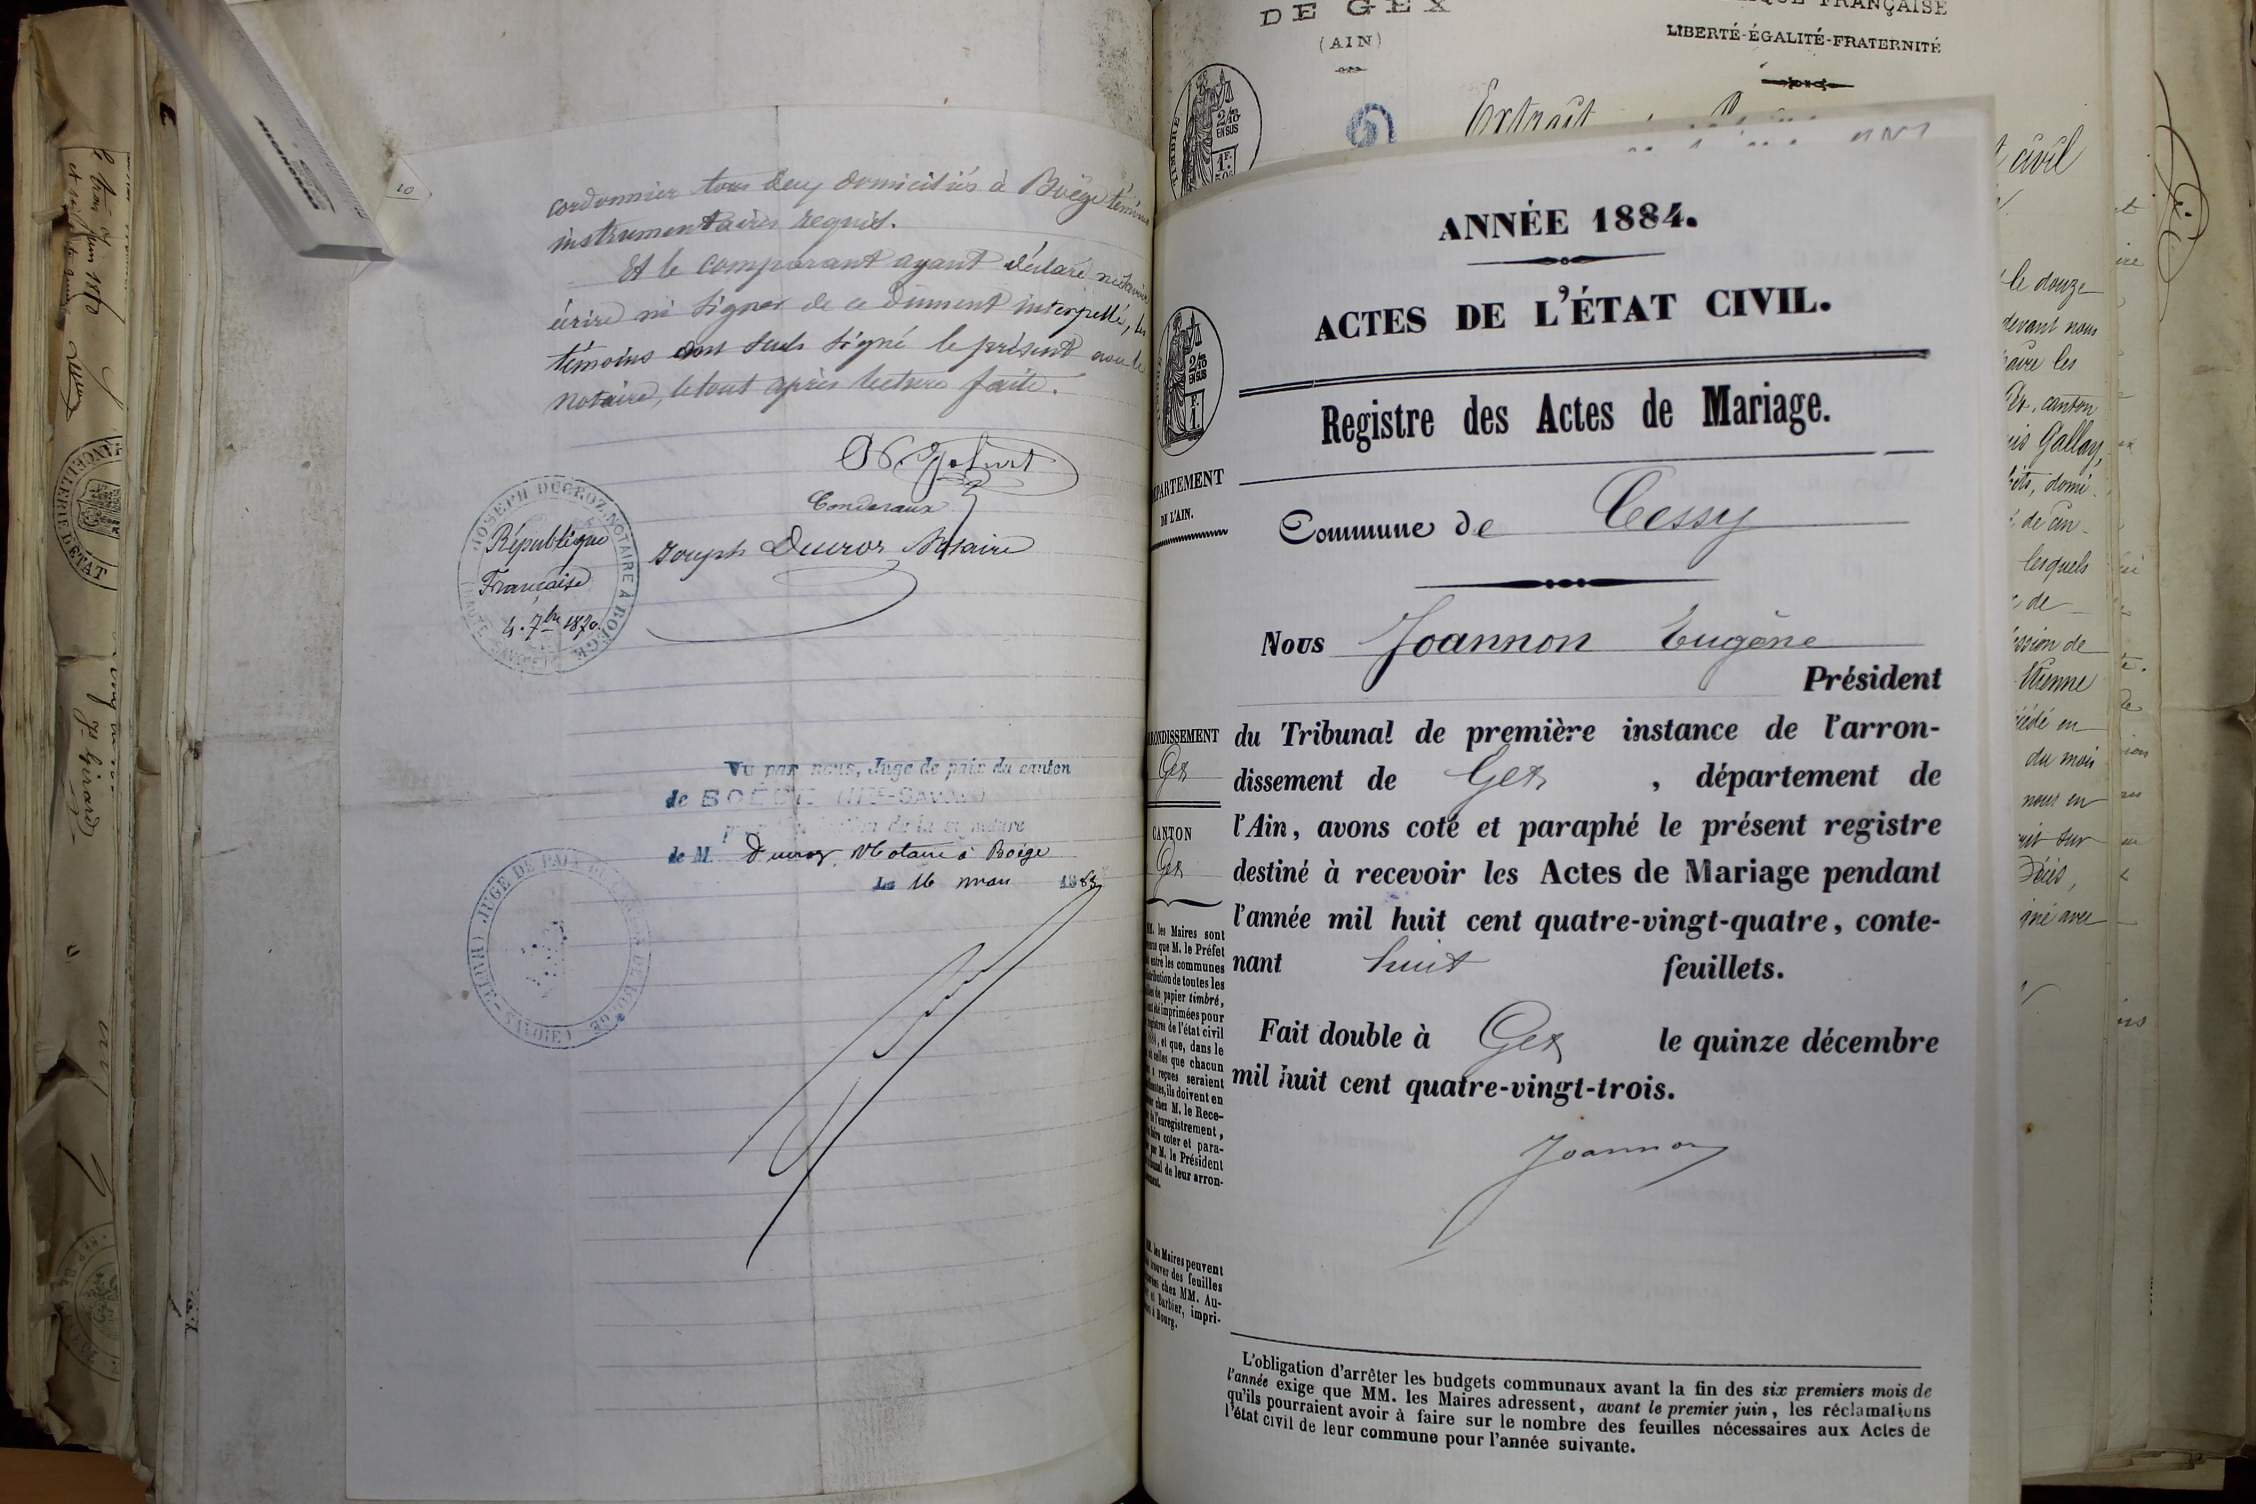 cordonnier tous deux domiciliés à Boëge témoins
instrumentaires requis.
Et le comparant ayant déclaré ne savoir
écrire ni signer de ce dûment interpellé, les
témoins ont seuls signé le présent avec le
notaire, le tout après lecture faite.
Condevaux
Joseph Ducroz Notaire
JOSEPH DUCROZ, NOTAIRE À BOËGE
(HAUTE-SAVOIE)
République
Française
4. 7bre 1870.
Vu par nous, Juge de paix du canton
de BOËGE (Hte-SAVOIE)
de la signature
de M. Ducroz, Notaire à Boëge
Le 16 mai 1883
JUGE DE PAIX DU CANTON DE BOËGE
(HAUTE-SAVOIE)
10
DE GEX
(AIN)
FRANÇAISE
LIBERTÉ-ÉGALITÉ-FRATERNITÉ
TIMBRE
2/10
EN SUS
1F.
50c
Extrait
civil
ANNÉE 1884.
ACTES DE L'ÉTAT CIVIL.
Registre des Actes de Mariage.
2/10
EN SUS
F.
1.
DÉPARTEMENT
DE L'AIN.
Commune de Cessy
Nous Joannon Eugène
Président
du Tribunal de première instance de l'arron-
dissement de Gex, département de
l'Ain, avons coté et paraphé le présent registre
destiné à recevoir les Actes de Mariage pendant
l'année mil huit cent quatre-vingt-quatre, conte-
nant huit feuillets.
Fait double à Gex le quinze décembre
mil huit cent quatre-vingt-trois.
Joannon
ARRONDISSEMENT
Gex
CANTON
Gex
MM. les Maires sont
que M. le Préfet
entre les communes
distribution de toutes les
de papier timbré,
imprimées pour
registres de l'état civil
1884, et que, dans le
celles que chacun
reçues seraient
ils doivent en
chez M. le Rece-
de l'enregistrement,
faire coter et para-
par M. le Président
tribunal de leur arron-
dissement.
MM. les Maires peuvent
trouver des feuilles
chez MM. Au-
et Barbier, impri-
à Bourg.
L'obligation d'arrêter les budgets communaux avant la fin des six premiers mois de
l'année exige que MM. les Maires adressent, avant le premier juin, les réclamations
qu'ils pourraient avoir à faire sur le nombre des feuilles nécessaires aux Actes de
l'état civil de leur commune pour l'année suivante.
le douze
devant nous
les
canton
Gallay,
domi-
lesquels
de
Etienne
en
du mois
nous en
sur
avec